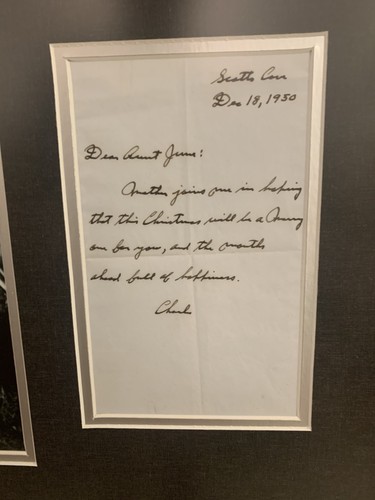 Scotts Cove
Dec 18, 1950
Dear Aunt June:
Mother joins me in hoping
that this Christmas will be a Merry
one for you, and the months
ahead full of happiness.